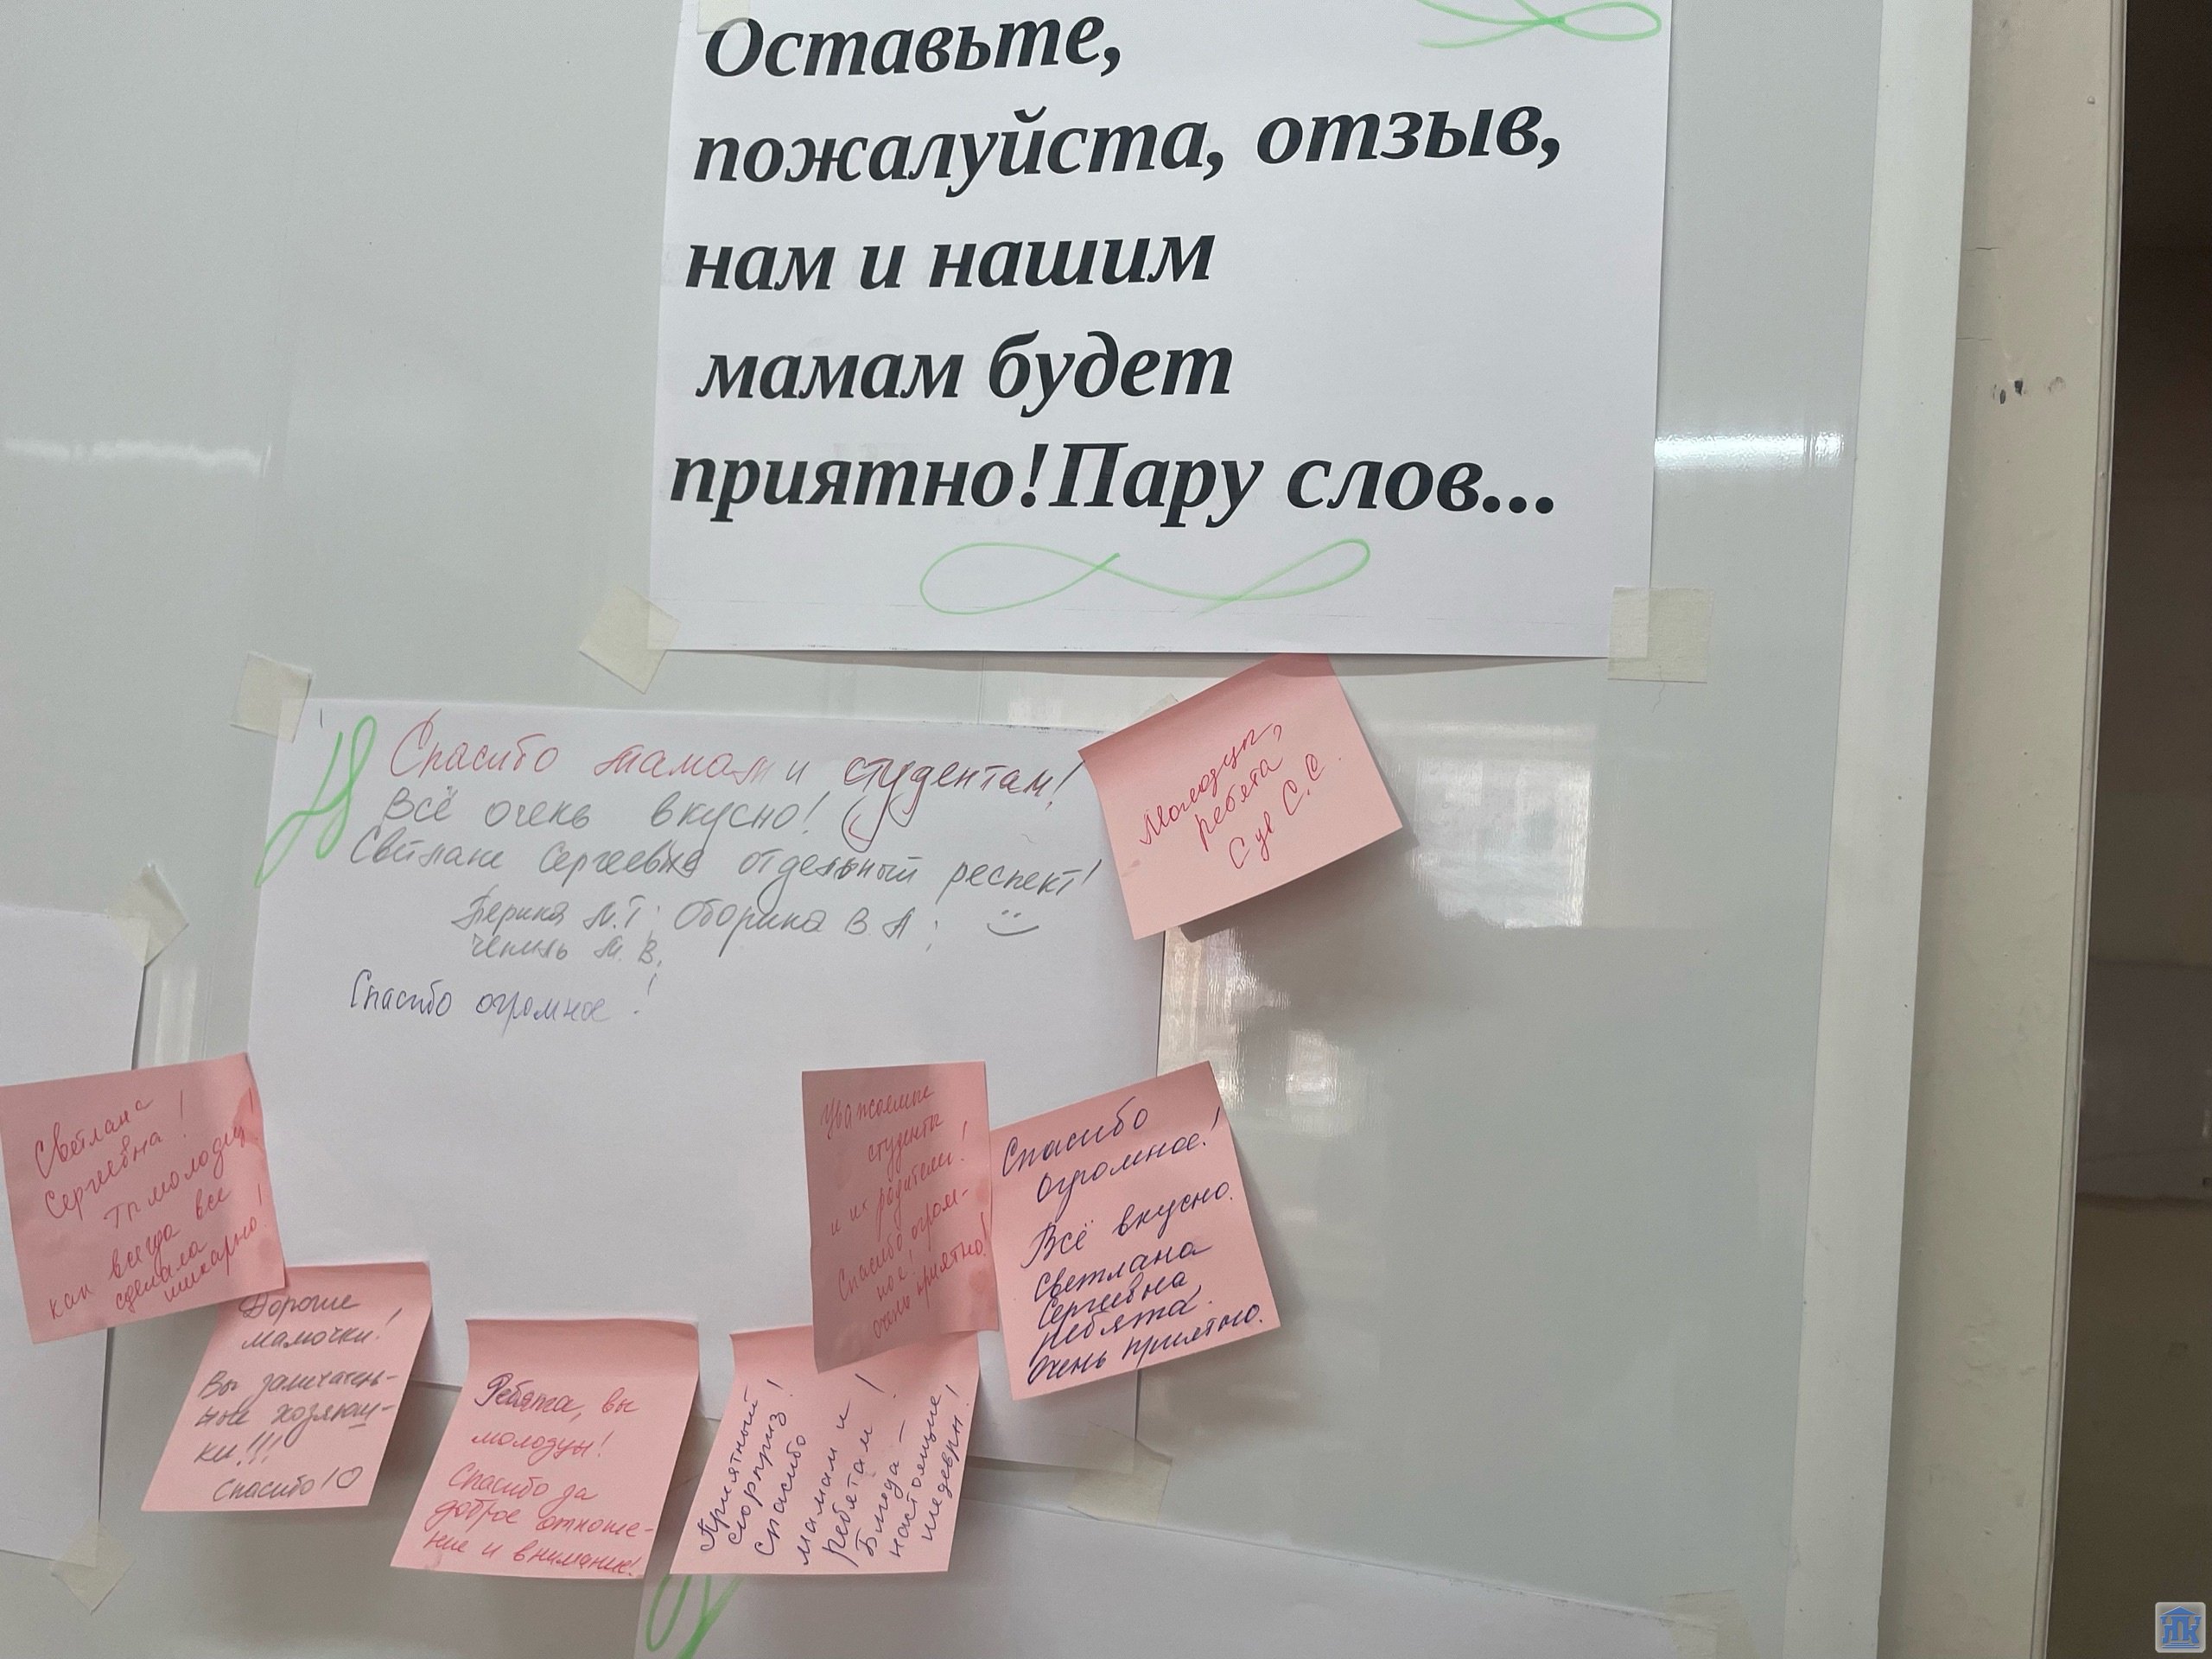 Оставьте,
пожалуйста, отзыв,
нам и нашим
мамам будет
приятно!Пару слов...
Спасибо мамам и студентам!
Всё очень вкусно!
Светлане Сергеевне отдельный респект!
Оборина В А
М. В.
Спасибо огромное!
Молодцы,
ребята
С. С.
Светлана
Сергеевна!
Ты молодец!
как всегда все
сделала
шикарно!
Дорогие
мамочки!
Вы замечатель-
ные хозяюш-
ки!!!
Спасибо!
Ребята, вы
молодцы!
Спасибо за
доброе отноше-
ние и внимание!
Приятный
сюрприз!
Спасибо
мамам и
ребятам!
Блюда –
настоящие
шедевры!
Уважаемые
студенты
и их родители!
Спасибо огром-
ное!
очень приятно!
Спасибо
огромное!
Всё вкусно.
Светлана
Сергеевна,
ребята.
Очень приятно.
ЛПК